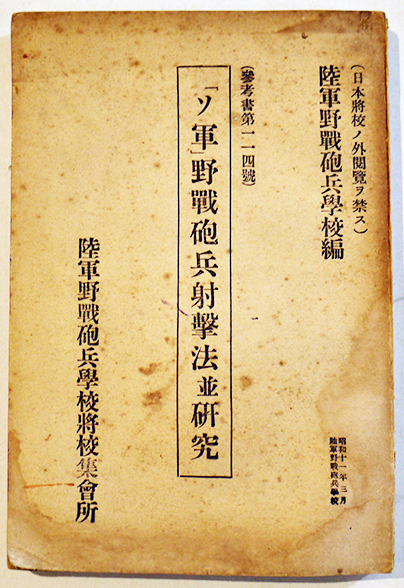 (日本將校ノ外閲覽ヲ禁ス)
陸軍野戰砲兵學校編
昭和十一年三月
陸軍野戰砲兵學校
(參考書第一一四號)
「ソ軍」野戰砲兵射擊法並研究
陸軍野戰砲兵學校將校集會所